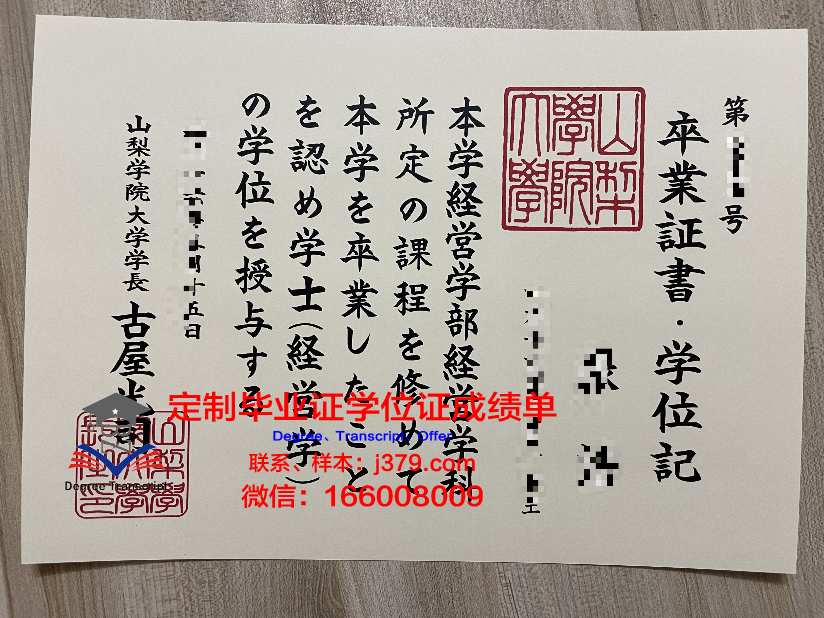 第
号
卒業証書・学位記
山梨
學院
大學
本学経営学部経営学科
所定の課程を修めて
本学を卒業したこと
を認め学士(経営学)
の学位を授与する
十五日
山梨学院大学学長 古屋光司
定制毕业证学位证成绩单
Degree、Transcript、Offer
联系、样本：j379.com
微信：166008009
Degree Transcript